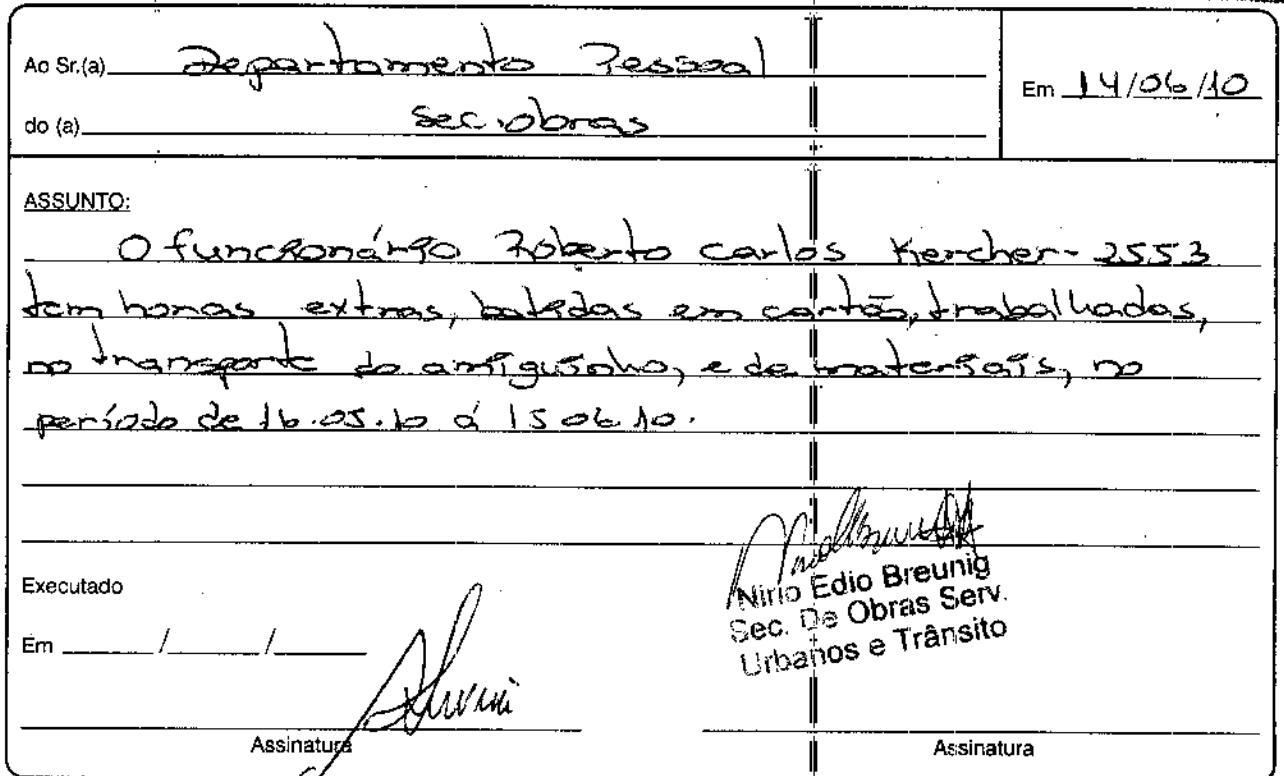 Ao Sr.(a) Departamento Pessoal
Em 14/06/10
do (a) Sec. obras
ASSUNTO:
O funcionário Roberto Carlos Kercher - 2553
tem horas extras, batidas em cartão, trabalhadas,
no transporte do amiguinho, e de materiais, no
período de 16.05.10 á 15 06 10.
Nirio Edio Breunig
Sec. De Obras Serv.
Urbanos e Trânsito
Executado
Em / /
Assinatura
Assinatura